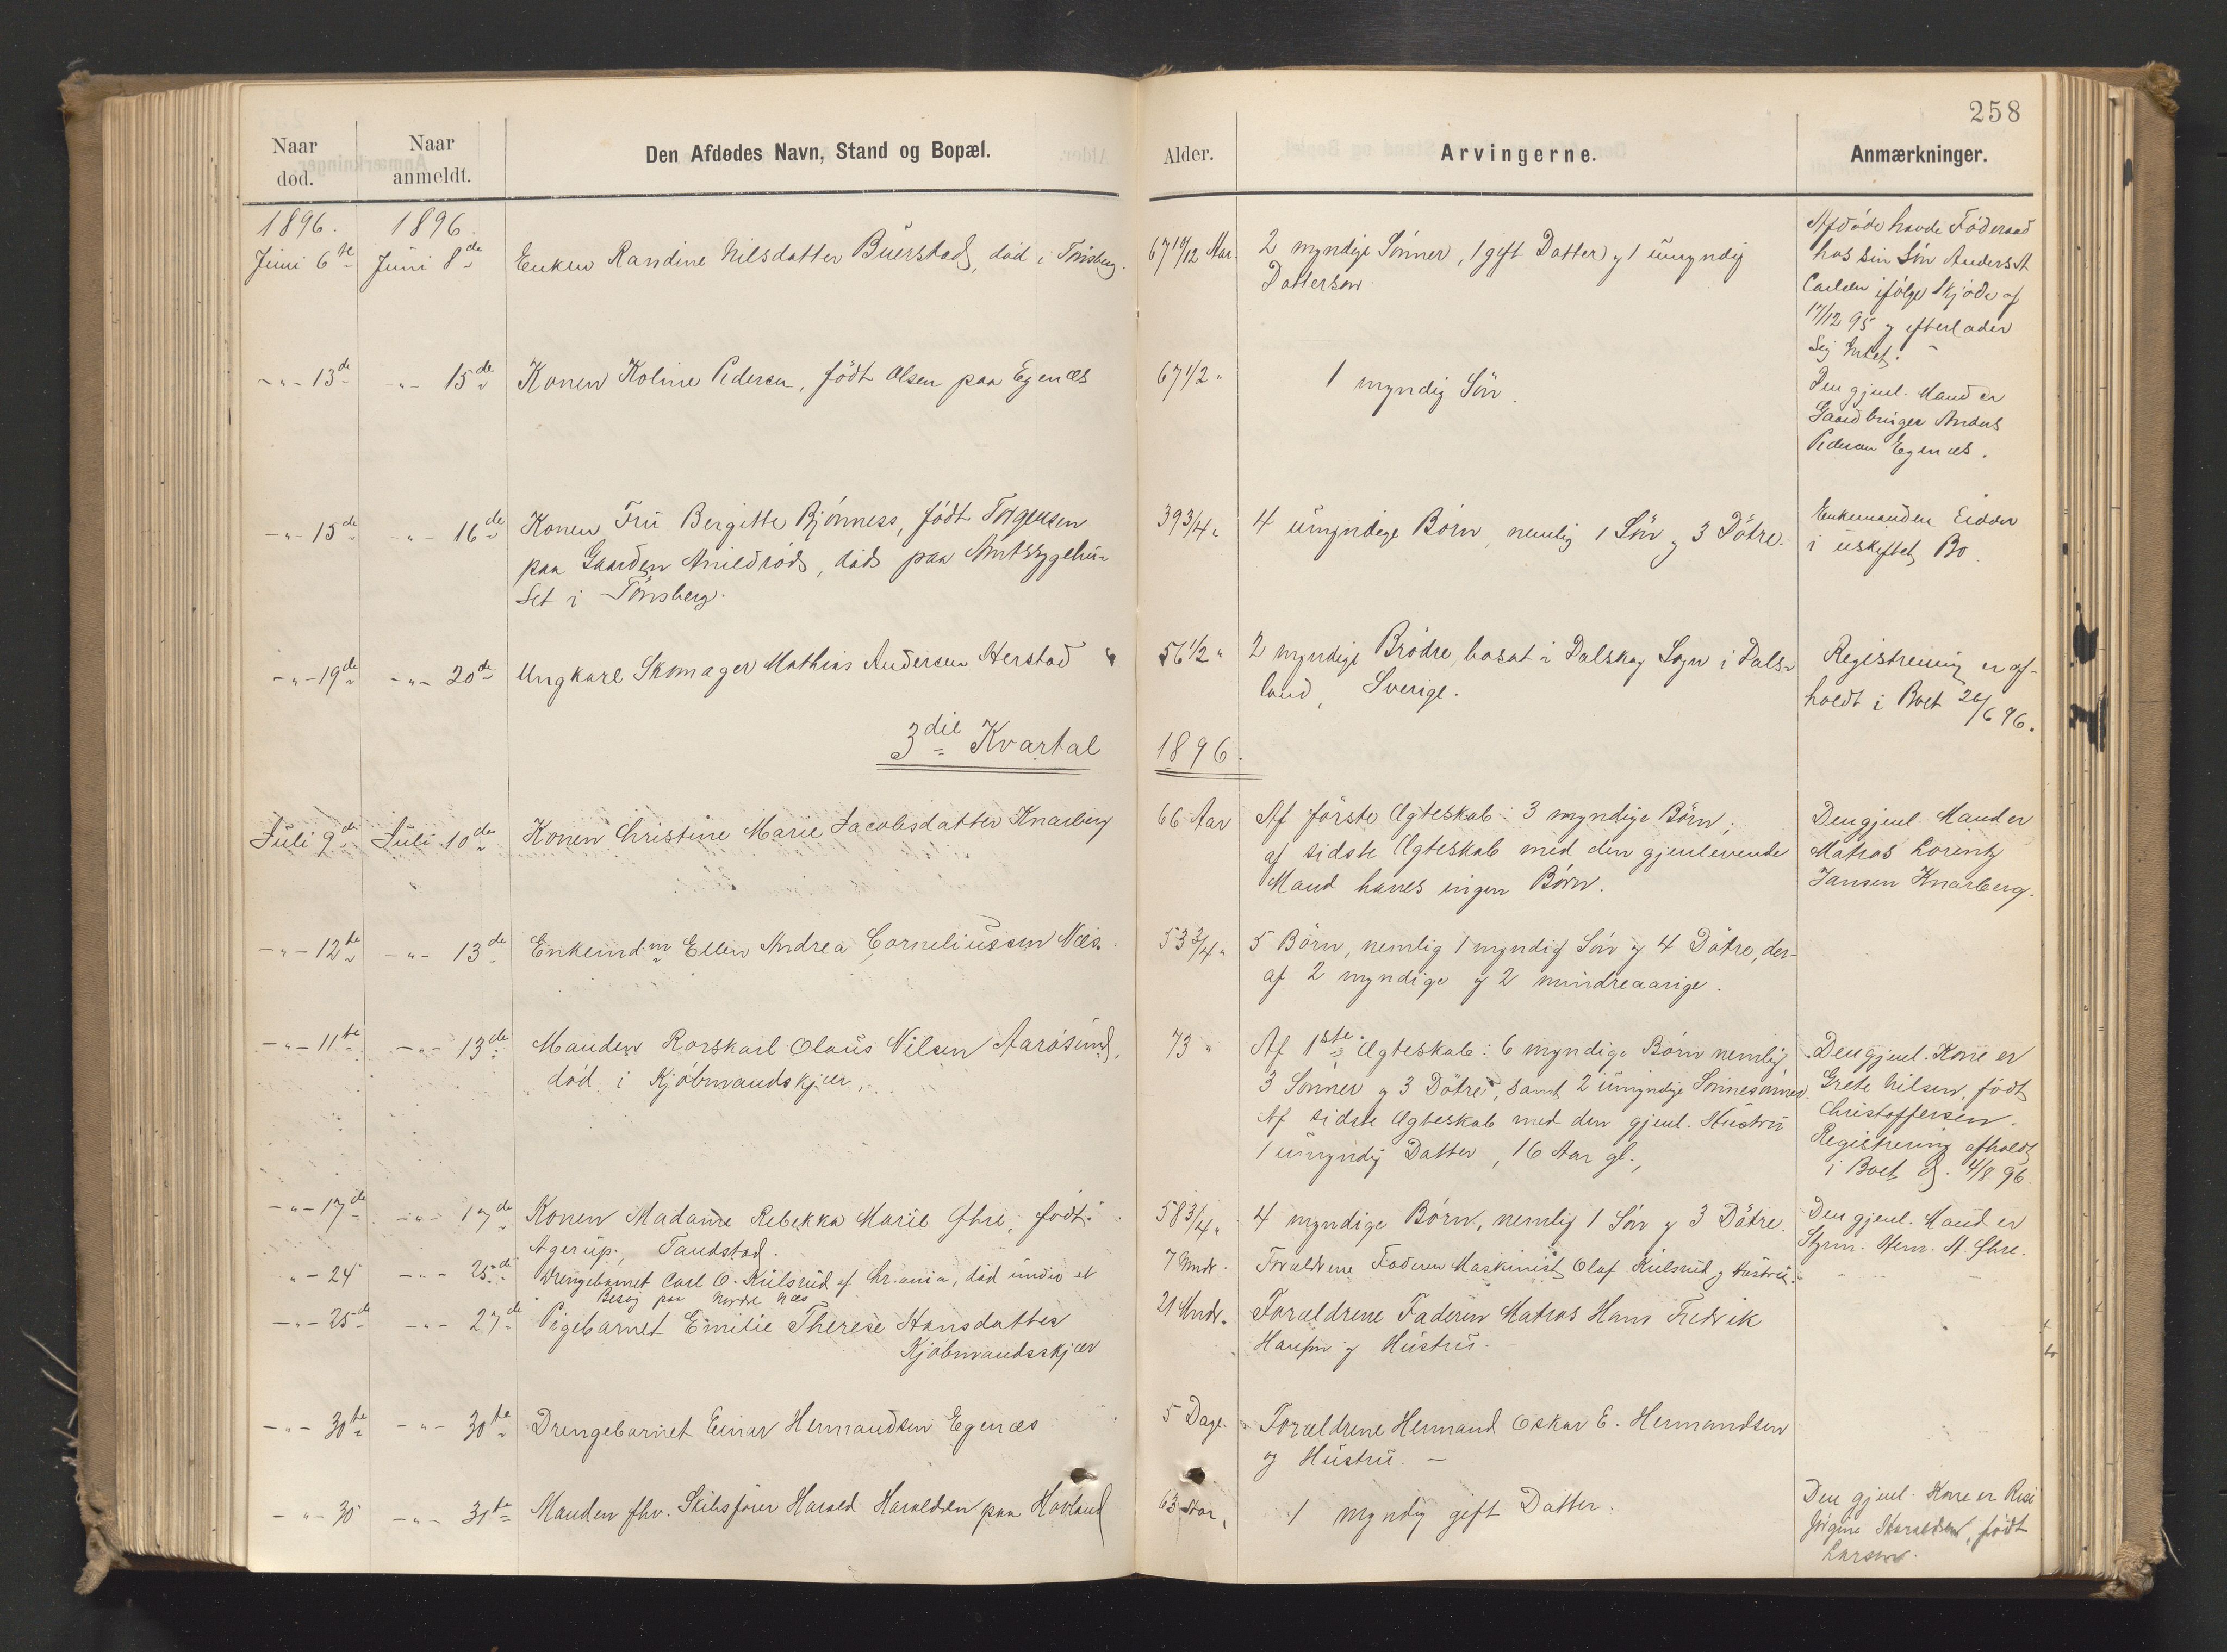 258
Naar død.
Naar anmeldt.
Den Afdødes Navn, Stand og Bopæl.
Alder.
Arvingerne.
Anmærkninger.
1896. 1896.
Juni 6te Juni 8de Enken Randine Nilsdatter Buerstad, død i Tønsberg. 67 10/12 Aar. 2 myndige Sønner, 1 gift Datter og 1 umyndig
Dattersøn.
Afdøde havde Føderaad
hos sin Søn Anders A
Carlsen ifølge Skjøde af
17/12 95 og efterlader
sig Intet. -
-"- 13de -"- 15de Konen Koline Pedersen, født Olsen paa Egenæs 67 1/2 " 1 myndig Søn.
Den gjenl. Mand er
Gaardbruger Anders
Pedersen Egenæs.
-"- 15de -"- 16de Konen Fru Bergitte Bjönness, født Torgensen
paa Gaarden , død paa Amtssygehu-
set i Tönsberg.
39 3/4 " 4 umyndige Børn, nemlig 1 Søn og 3 Døtre.
Enkemanden sidder
i uskiftet Bo.
-"- 19de -"- 20de Ungkarl Skomager Mathias Andersen Herstad 56 1/2 " 2 myndige Brødre, bosat i Dalskog Sogn i Dals-
land, Sverige.
Registrering er af-
holdt i Boet 26/6 96.
3die Kvartal 1896.
Juli 9de Juli 10de Konen Christine Marie Jacobsdatter Knarberg 66 Aar Af første Ægteskab: 3 myndige Børn;
af sidste Ægteskab med den gjenlevende
Mand haves ingen Børn.
Den gjenl. Mand er
Matros Lorentz
Jansen Knarberg.
-"- 12te -"- 13de Enkemdm Ellen Andrea Corneliussen Næs. 53 3/4 " 5 Børn, nemlig 1 myndig Søn og 4 Døtre, der-
af 2 myndige og 2 mindreaarige.
-"- 11te -"- 13de Manden Rorskarl Olaus Nilsen Aarøsund,
død i Kjøbmandskjær,
73 " Af 1ste Ægteskab: 6 myndige Børn nemlig
3 Sønner og 3 Døtre, samt 2 umyndige Sønnesønner.
Af sidste Ægteskab med den gjenl. Hustru
1 umyndig Datter, 16 Aar gl.,
Den gjenl. Kone er
Grete Nilsen, født
Christoffersen.
Registrering afholdt
i Boet d. 4/8 96.
-"- 17de -"- 17de Konen Madame Rebekka Marie Ihre, født
Agerup, Tandstad.
58 3/4 " 4 myndige Børn, nemlig 1 Søn og 3 Døtre.
Den gjenl. Mand er
Styrm. Herm. A. Ihre.
"- 24 -"- 25de Drengebarnet Carl O. Kulsrud af Chr.ania, død under et
Besøg paa Nordre Næs
7 Mndr. Forældrene Faderen Maskinist Olaf Kulsrud og Hustru.
-"- 25de -"- 27de Pigebarnet Emilie Therese Hansdatter
Kjøbmandsskjær
21 Mndr. Forældrene Faderen Matros Hans Fredrik
Hansen og Hustru.
-"- 30te -"- 30te Drengebarnet Einar Hermandsen Egenæs 5 Dage. Forældrene Hermand Oskar E. Hermandsen
og Hustru. -
-"- 30 -"- 31te Manden fhv. Skibsfører Harald Haraldsen paa Hovland 63 Aar, 1 myndig gift Datter.
Den gjenl. Kone er
Jørgine Haraldsen, født
Larsen.